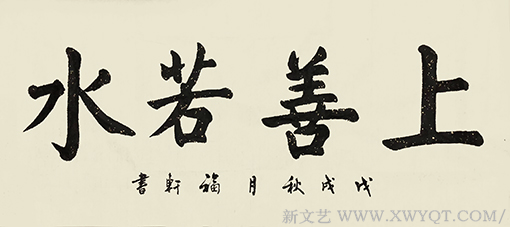 上善若水
戊戌秋月福軒書
新文艺 WWW.XWYQT.COM/